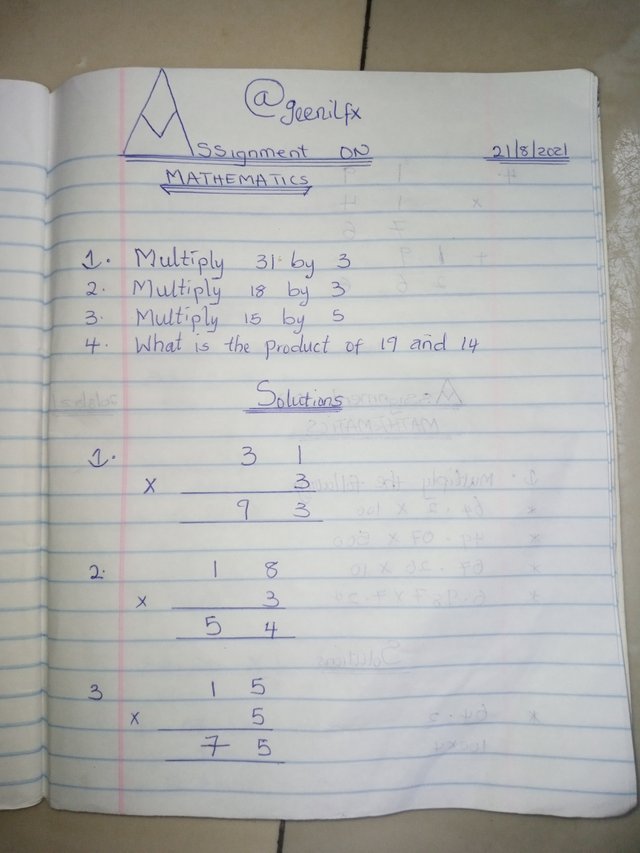 @geenilfx
Assignment ON 21/8/2021
MATHEMATICS
1. Multiply 31 by 3
2. Multiply 18 by 3
3. Multiply 15 by 5
4. What is the product of 19 and 14
Solutions
1. 3 1
x 3
9 3
2. 1 8
x 3
5 4
3 1 5
x 5
7 5